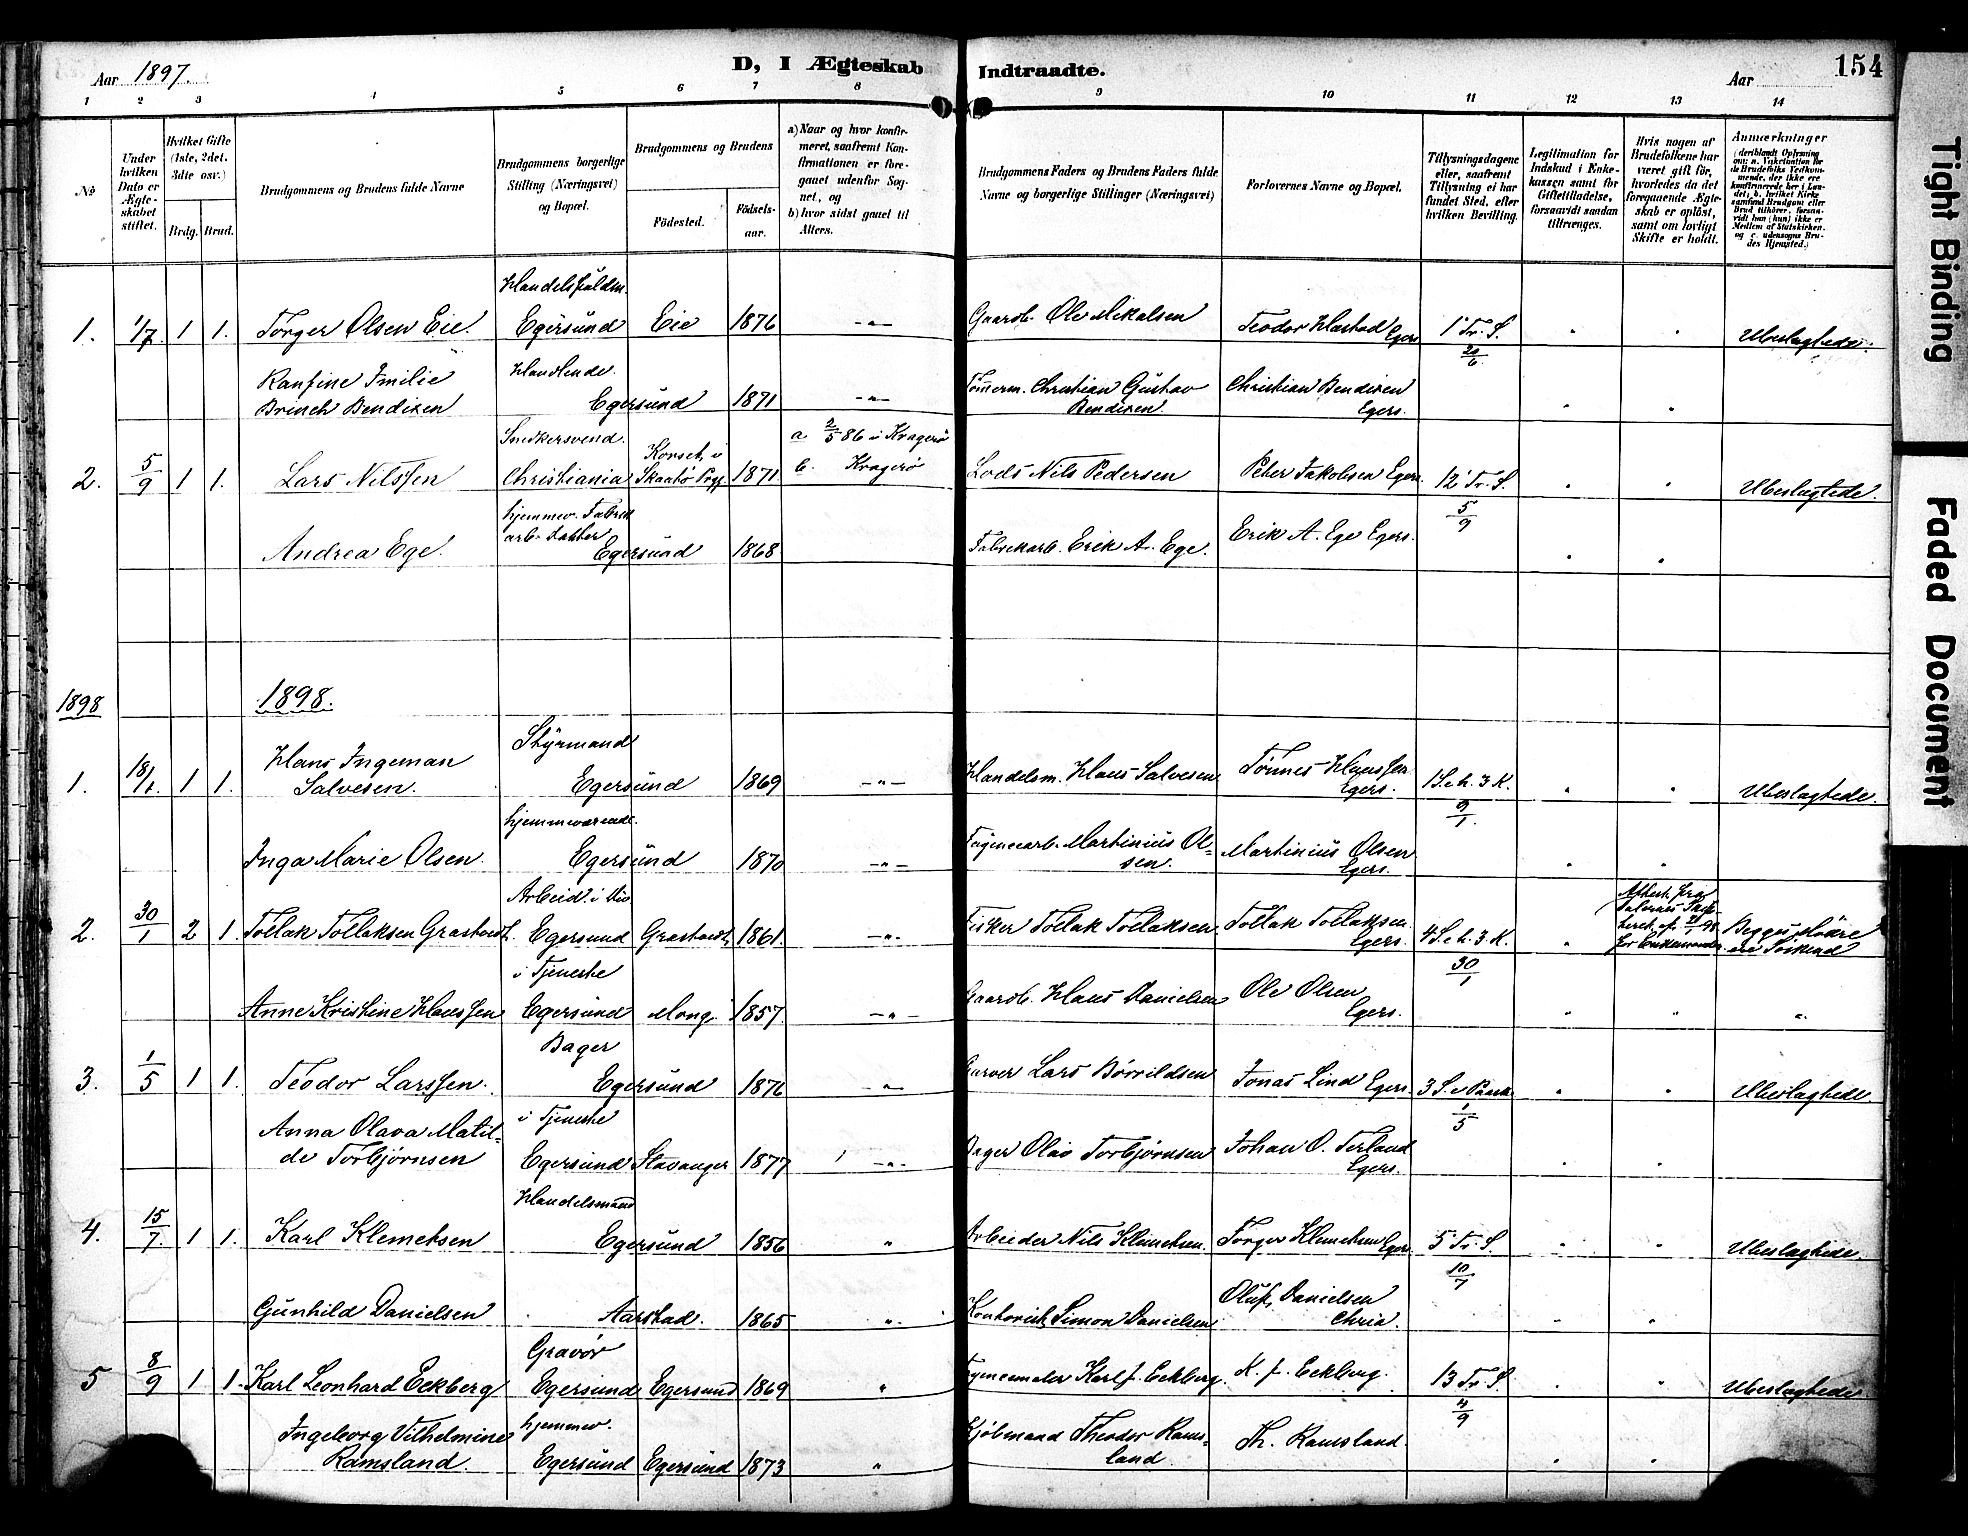 Aar 1897. D, I Ægteskab Indtraadte. Aar 154
1 2 3 4 5 6 7 8 9 10 11 12 13 14
№
Under hvilken Dato er Ægteskabet stiftet.
Hvilket Gifte (1ste, 2det, 3die osv.)
Brdg. Brud.
Brudgommens og Brudens fulde Navne
Brudgommens borgerlige Stilling (Næringsvei) og Bopæl.
Brudgommens og Brudens
Fødested. Fødselsaar.
a) Naar og hvor konfirmeret, saafremt Konfirmationen er foregaaet udenfor Sognet, og
b) hvor sidst gaaet til Alters.
Brudgommens Faders og Brudens Faders fulde Navne og borgerlige Stillinger (Næringsvei)
Forlovernes Navne og Bopæl.
Tillysningsdagene eller, saafremt Tillysning ei har fundet Sted, efter hvilken Bevilling.
Legitimation for Indskud i Enkekassen samt for Giftetilladelse, forsaavidt saadan tiltrænges.
Hvis nogen af Brudefolkene har været gift før, hvorledes da det foregaaende Ægteskab er opløst, samt om lovligt Skifte er holdt.
Anmærkninger
Handelsfuldm.
1. 1/7 1 1. Torger Olsen Eie. Egersund Eie 1876 -"- Gaardb. Ole Mikalsen Teodor Hastad Egers 1' Tr. S. 20/6 " " Ubeslagtede.
Ranfine Emilie Handlende.
Brinch Bendixen Egersund 1871 -"- Tømmerm. Christian Gustav Bendixen. Christian Bendixen Egers. " "
Snedkersvend. a 2/5 86 i Kragerø
2. 5/9 1 1. Lars Nilssen Christiania Korset, i Skaatø Prgj. 1871 b. Kragerø Lods Nils Pedersen Peter Jakobsen Egers. 12' Tr. S. 5/9 " " Ubeslagtede.
hjemmev. Fabrik
arb. datter
Andrea Ege. Egersund 1868 Fabrikarb. Erik A. Ege. Erik A. Ege Egers. " "
1898 1898.
Styrmand
1. 18/1. 1 1. Hans Ingeman Salvesen. Egersund 1869 -"- Handelsm. Hans Salvesen Tønnes Hanssen Egers. 1 S. e. h. 3. K. 9/1. " " Ubeslagtede.
hjemmeværende.
Inga Marie Olsen. Egersund 1870 -"- Martinius Olsen. Martinius Olsen Egers. " "
2. 30/1 2 1. Tollak Tollaksen Egersund 1861. -"- Fisker Tollak Tollaksen Tollak Tollaksen Egers. 4 S. e. h. 3. K. 30/1 "
i Tjeneste
Anne Kristine Hanssen Egersund Mong. 1857. -"- Gaardb. Hans Danielsen Ole Olsen Egers. " " "
Bager
3. 1/5 1 1. Teodor Larssen. Egersund 1876 -"- Garver Lars Børrildsen Jonas Lind Egers. 3 S. e Paask. 1/5 " " Ubeslagtede.
Anna Olava Matil- i Tjeneste
de Torbjørnsen Egersund Stavanger 1877 -"- Bager Olav Torbjørnsen Johan O. Terland Egers. " "
Handelsmand
4. 15/7. 1 1. Karl Klemetsen Egersund 1856 " Arbeider Nils Klemetsen. Torger Klemetsen Egers 5 Tr. S. 10/7 " " Ubeslagtede.
Gunhild Danielsen Aarstad. 1865 " Simon Danielsen Oluf Danielsen Chria. " "
Gravør
5 8/9 1 1. Karl Leonhard Eckberg Egersund Egersund 1869 " Karl J. Eckberg. K. J. Eckberg. 13 Tr. S. 4/9 " " Ubeslagtede.
Ingeborg Vilhelmine hjemmev.
Ramsland. Egersund Egersund 1873 " Kjøbmand Theodor Ramsland Th. Ramsland. " "
Tight Binding
Faded Document